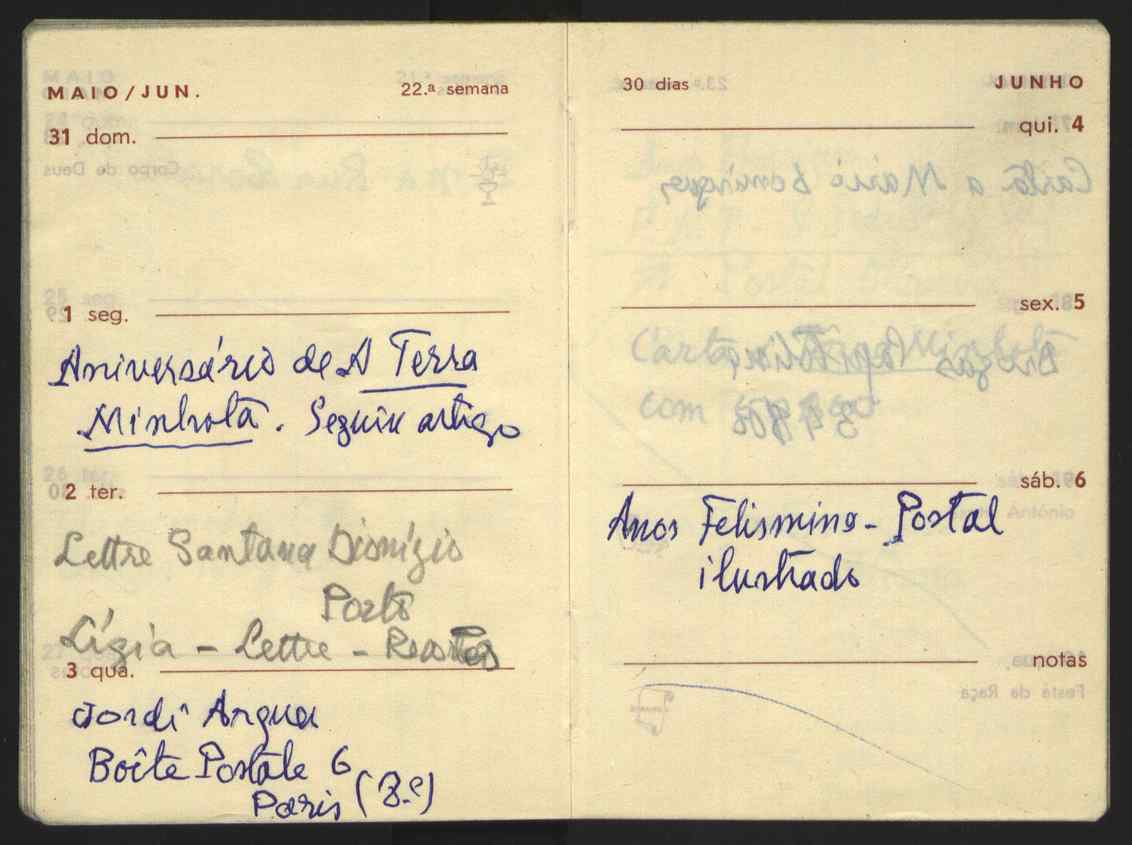 MAIO/JUN. 22.ª semana
31 dom.
1 seg.
Aniversário de A Terra
Minhota. Seguiu artigo
2 ter.
Lettre Santana Dionízio
Porto
Lígia - Lettre -
3 qua.
Jordi
Boîte Postale 6
Paris (8.e)
30 dias JUNHO
qui. 4
sex. 5
sáb. 6
Anos Felismino - Postal
ilustrado
notas